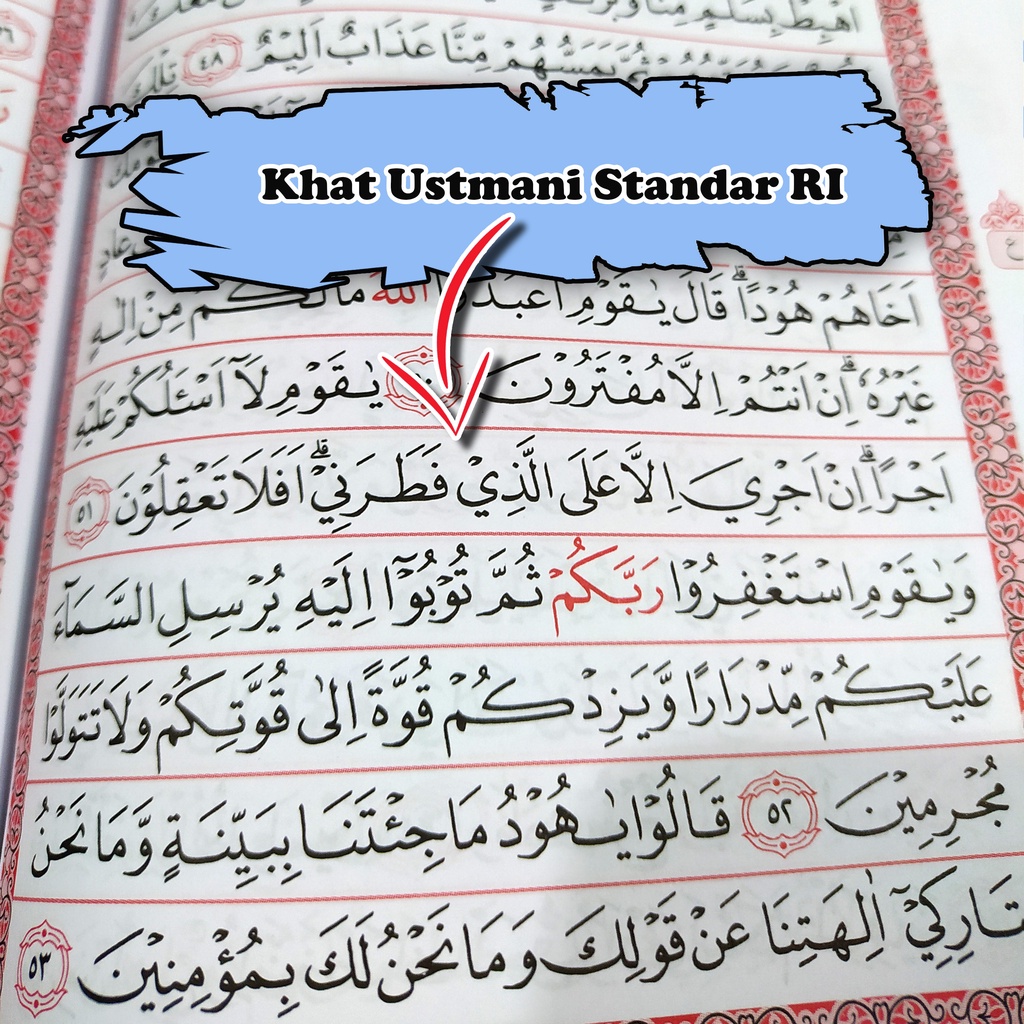 اَلِيْمٌ ٤٨ تِلْكَ
Khat Ustmani Standar RI
اَخَاهُمْ هُوْدًاۗ قَالَ يٰقَوْمِ اللّٰهَ مَا لَكُمْ مِّنْ اِلٰهٍ
غَيْرُهٗۗ اِنْ اَنْتُمْ اِلَّا مُفْتَرُوْنَ يٰقَوْمِ لَآ اَسْـَٔلُكُمْ عَلَيْهِ
اَجْرًاۗ اِنْ اَجْرِيَ اِلَّا عَلَى الَّذِيْ فَطَرَنِيْۗ اَفَلَا تَعْقِلُوْنَ ٥١
وَيٰقَوْمِ اسْتَغْفِرُوْا رَبَّكُمْ ثُمَّ تُوْبُوْٓا اِلَيْهِ يُرْسِلِ السَّمَاۤءَ
عَلَيْكُمْ مِّدْرَارًا وَّيَزِدْكُمْ قُوَّةً اِلٰى قُوَّتِكُمْ وَلَا تَتَوَلَّوْا
مُجْرِمِيْنَ ٥٢ قَالُوْا يٰهُوْدُ مَا جِئْتَنَا بِبَيِّنَةٍ وَّمَا نَحْنُ
تَارِكِيْٓ اٰلِهَتِنَا عَنْ قَوْلِكَ وَمَا نَحْنُ لَكَ بِمُؤْمِنِيْنَ ٥٣